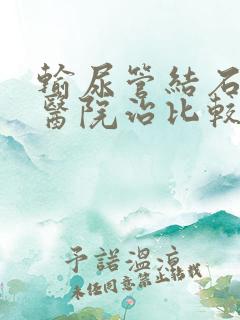 輸尿管結石
醫院治比較
予諾溫涼
未經同意禁止轉載